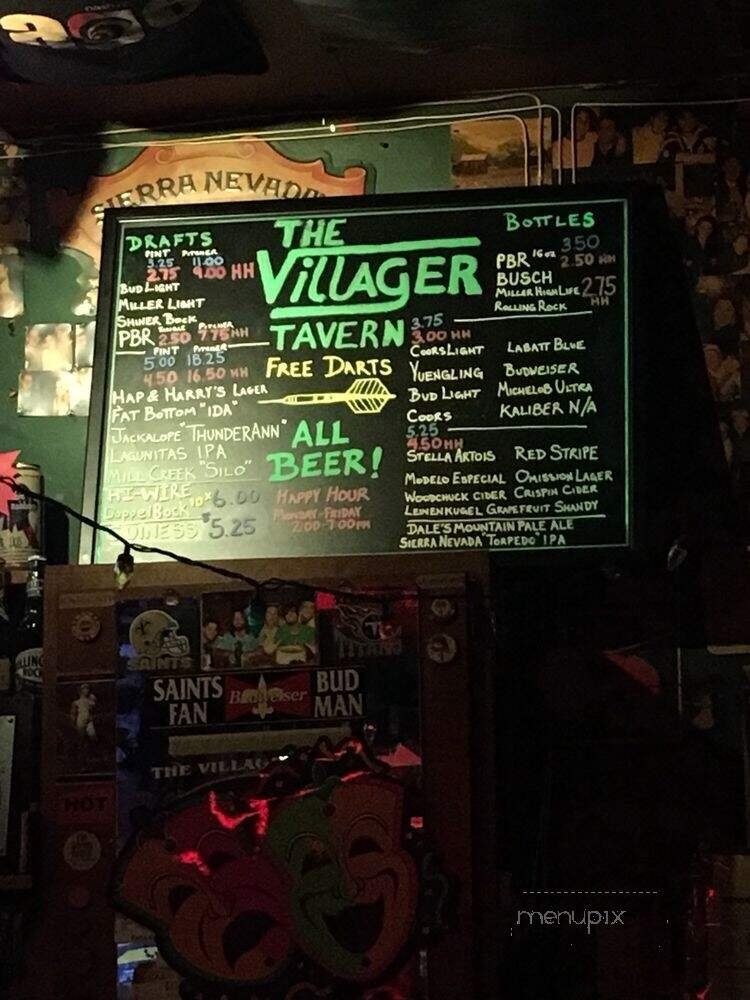 SIERRA NEVADA
DRAFTS
PINT PITCHER
3.25 11.00
2.75 9.00 HH
BUD LIGHT
MILLER LIGHT
SHINER BOCK
PBR 2.50 PITCHER 7.75 HH
PINT PITCHER
5.00 18.25
4.50 16.50 HH
HAP & HARRY'S LAGER
FAT BOTTOM "IDA"
JACKALOPE "THUNDERANN"
LAGUNITAS IPA
MILL CREEK "SILO"
HI-WIRE
DOPPELBOCK 10% 6.00
GUINESS $5.25
THE
VILLAGER
TAVERN
FREE DARTS
ALL
BEER!
HAPPY HOUR
MONDAY-FRIDAY
2:00-7:00PM
BOTTLES
3.50
PBR 16 oz 2.50 HH
BUSCH
MILLER HIGH LIFE 2.75
HH
ROLLING ROCK
3.75
3.00 HH
COORS LIGHT LABATT BLUE
YUENGLING BUDWEISER
BUD LIGHT MICHELOB ULTRA
COORS KALIBER N/A
5.25
4.50 HH
STELLA ARTOIS RED STRIPE
MODELO ESPECIAL OMISSION LAGER
WOODCHUCK CIDER CRISPIN CIDER
LEINENKUGEL GRAPEFRUIT SHANDY
DALE'S MOUNTAIN PALE ALE
SIERRA NEVADA "TORPEDO" IPA
SAINTS
TITANS
SAINTS
FAN
Budweiser
BUD
MAN
THE VILLAG
HOT
menupix